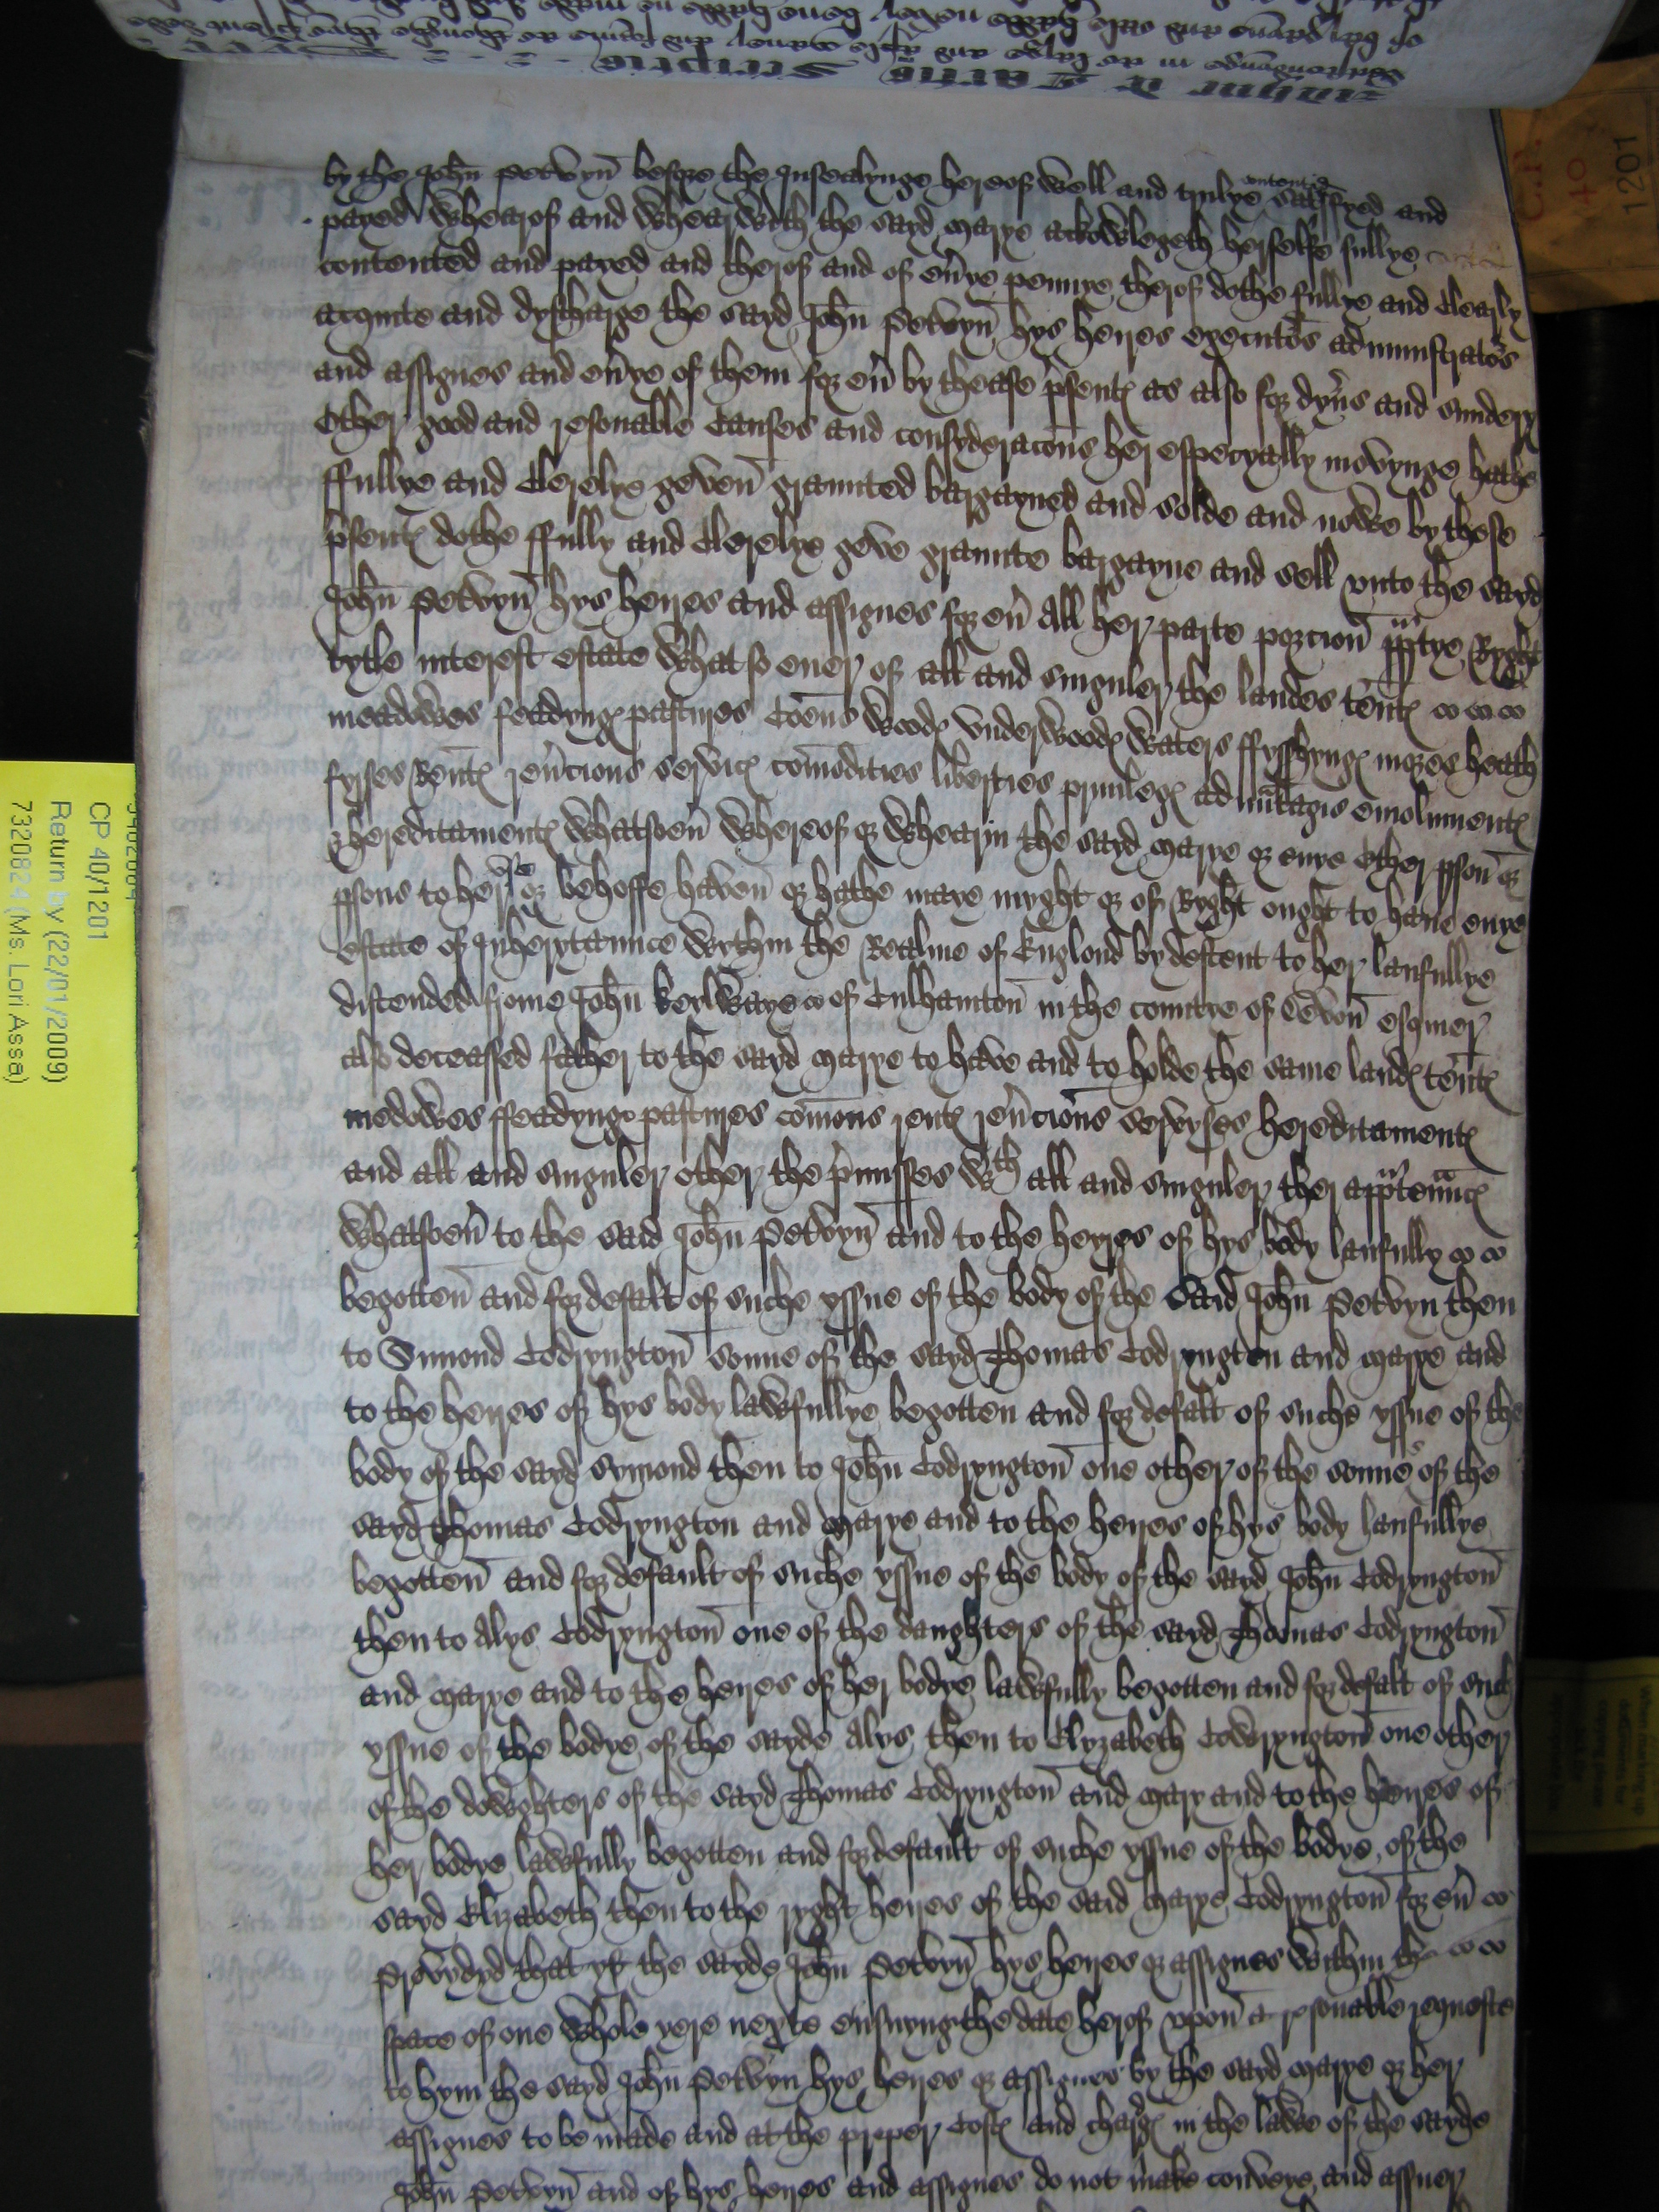 by the John Petvyn before the Insealynge hereof well and trulye contentid satisfyed and
payed Wheareof and Whearewth the sayd Marye acknowlegeth herselfe fullye
contented and payed and therof and of eṽye pennye therof dothe fullye and Clearly
acquite and dyscharge the sayd John Petvyn hys heires executors administrators
and assignes and eṽye of them for eṽ by thease p̃sentes as also for dyũs and sundery
other good and resonable Causes and consyderacõns her especyally movynge hathe
ffullye and Clerelye geven graunted bargayned and solde and nowe by these
p̃sentes dothe ffully and Clerelye geve graunte bargayne and sell vnto the sayd
John Petvyn hys heires and assignes for eṽ All her parte porcion Ryght
tytle interest estate What so euer of all and singuler the landes teñtes
meadowes feadynges pastures Coẽns Woodes vnderwoodes Waters ffysshynges mores heath
fyrses Rentes reṽcions services comõdities liberties priuileges aduñtagis emolumentes
& hereditamentes Whatsoeṽ Whereof or Whearin the sayd Marye or enye other pson or
psons to her vse or behoffe haven or hathe maye myght or of Ryght ought to haue enye
estate of Inherytaunce Wythin the Realme of Englond by descent to her laufullye
discended frome John Keylwaye of Culhamton in the countye of Devon esquier
also deceassed father to the sayd Marye to have and to holde the same landes teñtes
medowes ffeadynges pastures comons rentes reṽcions servyses hereditamentes
and all and singuler other the p̃misses wth all and singuler ther apptenñces
Whatsoeṽ to the said John Petvyn and to the heyres of hys body laufully
begotten and for defalt of suche yssue of the body of the said John Petvyn then
to Simond Codryngton sonne of the sayd Thomas Codryngton and Marye and
to the heires of hys body lawfullye begotten and for defalt of suche yssue of the
body of the sayd Symond then to John Codryngton one other of the sonnes of the
sayd Thomas Codryngton and Marye and to the heires of hys body laufullye
begotten and for default of suche yssue of the body of the sayd John Codryngton
then to Alys Codryngton one of the daughters of the sayd Thomas Codryngton
and Marye and to the heires of her bodye lawfully begotten and for defalt of such
yssue of the bodye of the sayde Alys then to Elyzabeth Codryngton one other
of the dowghters of the sayd Thomas Codryngton and Mary and to the heires of
her bodye lawfully begotten and for default of suche yssue of the bodye of the
sayd Elizabeth then to the ryght heires of the said Marye Codryngton for eṽ
Provydyd that yf the sayde John Petvyn hys heires or assignes Within the
space of one Whole yere nexte ensuyng the date herof vpon a resonable requeste
to hym the sayd John Petvyn hys heires or assignes by the sayd Marye or her
assignes to be made and at the proper Costes and charges in the lawe of the sayde
John Petvyn and of hys heires and assignes do not make conveye and assuer
C.P.
40
1201
CP 40/1201
Return by (22/01/2009)
7320824 (Ms. Lori Assa)